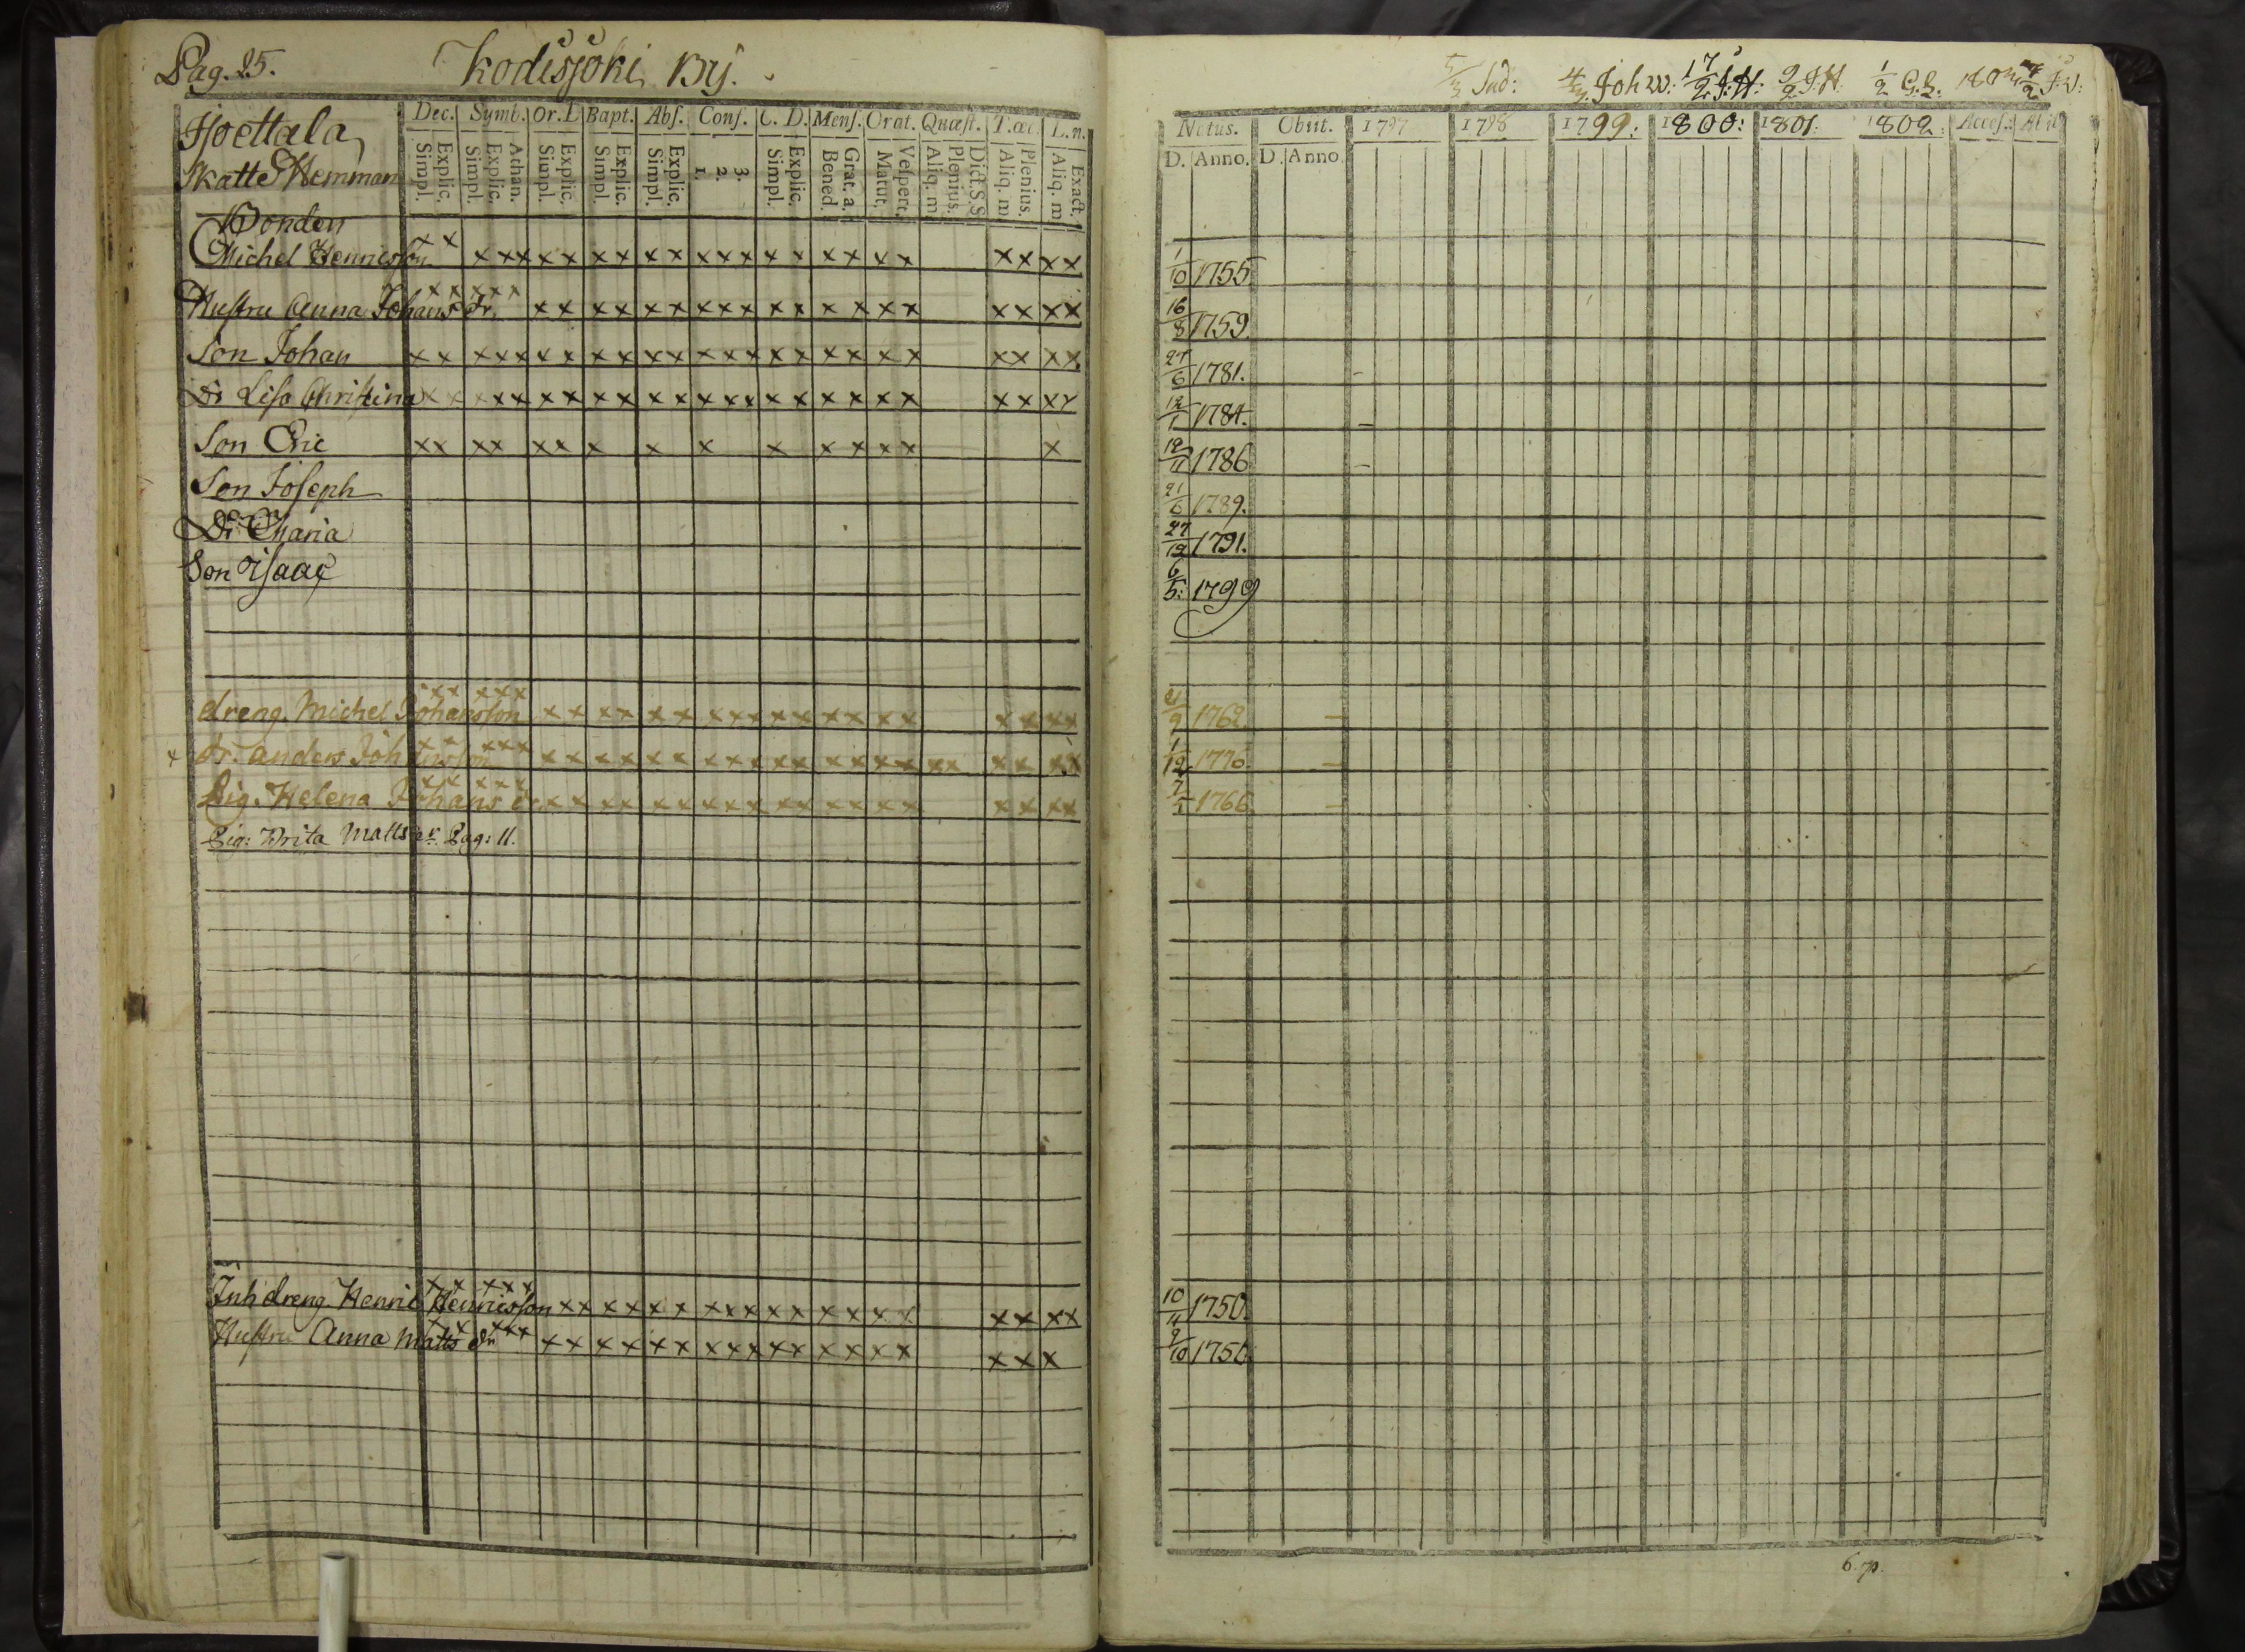 Pag. 25. Kodisjoki By.
Isoettala
Skatte Hemman
Dec. Symb. Or. D Bapt. Abs. Conf. C. D. Mens. Orat. Quæst. T. æc. L. n.
Simpl. Explic. Simpl. Explic. Athan. Simpl. Explic. Simpl. Explic. Simpl. Explic. 1. 2. 3. Simpl. Explic. Bened. Grat. a. Matut. Vespert. Aliq. m Plenius. Dict. S.S Aliq. m Plenius. Aliq. m Exact.
Bonden
Michel Henricsson x x x x x x x x x x x x x x x x x x x x x x x x
Hustru Anna Johans dr. x x x x x x x x x x x x x x x x x x x x x x x x
Son Johan x x x x x x x x x x x x x x x x x x x x x x x x
Dr Lisa Christina x x x x x x x x x x x x x x x x x x x x x x x x
Son Eric x x x x x x x x x x x x x x x
Son Joseph
Dr Maria
Son Isaac
dreng. Michel Johansson x x x x x x x x x x x x x x x x x x x x x x x x
x dr. Anders Johansson x x x x x x x x x x x x x x x x x x x x x x x x x x
Pig. Helena Johans dr x x x x x x x x x x x x x x x x x x x x x x x x
Pig: Brita Matts dr. Pag: 11.
Inh dreng. Henric Henricsson x x x x x x x x x x x x x x x x x x x x x x x x
Hustru Anna Matts dr x x x x x x x x x x x x x x x x x x x x x x x
5/3 4/3 Joh W: 17/2 J:H: 9/2 J.H. 1/2 G.L.
Natus. Obiit. 1797 1798 1799: 1800: 1801: 1802: Access.
D. Anno. D. Anno.
1/10 1755
16/8 1759.
27/6 1781.
12/1 1784.
12/11 1786
21/6 1789.
27/12 1791.
6/5: 1799
21/9 1762.
1/12 1776.
7/5 1766
10/11 1750.
9/10 1750.